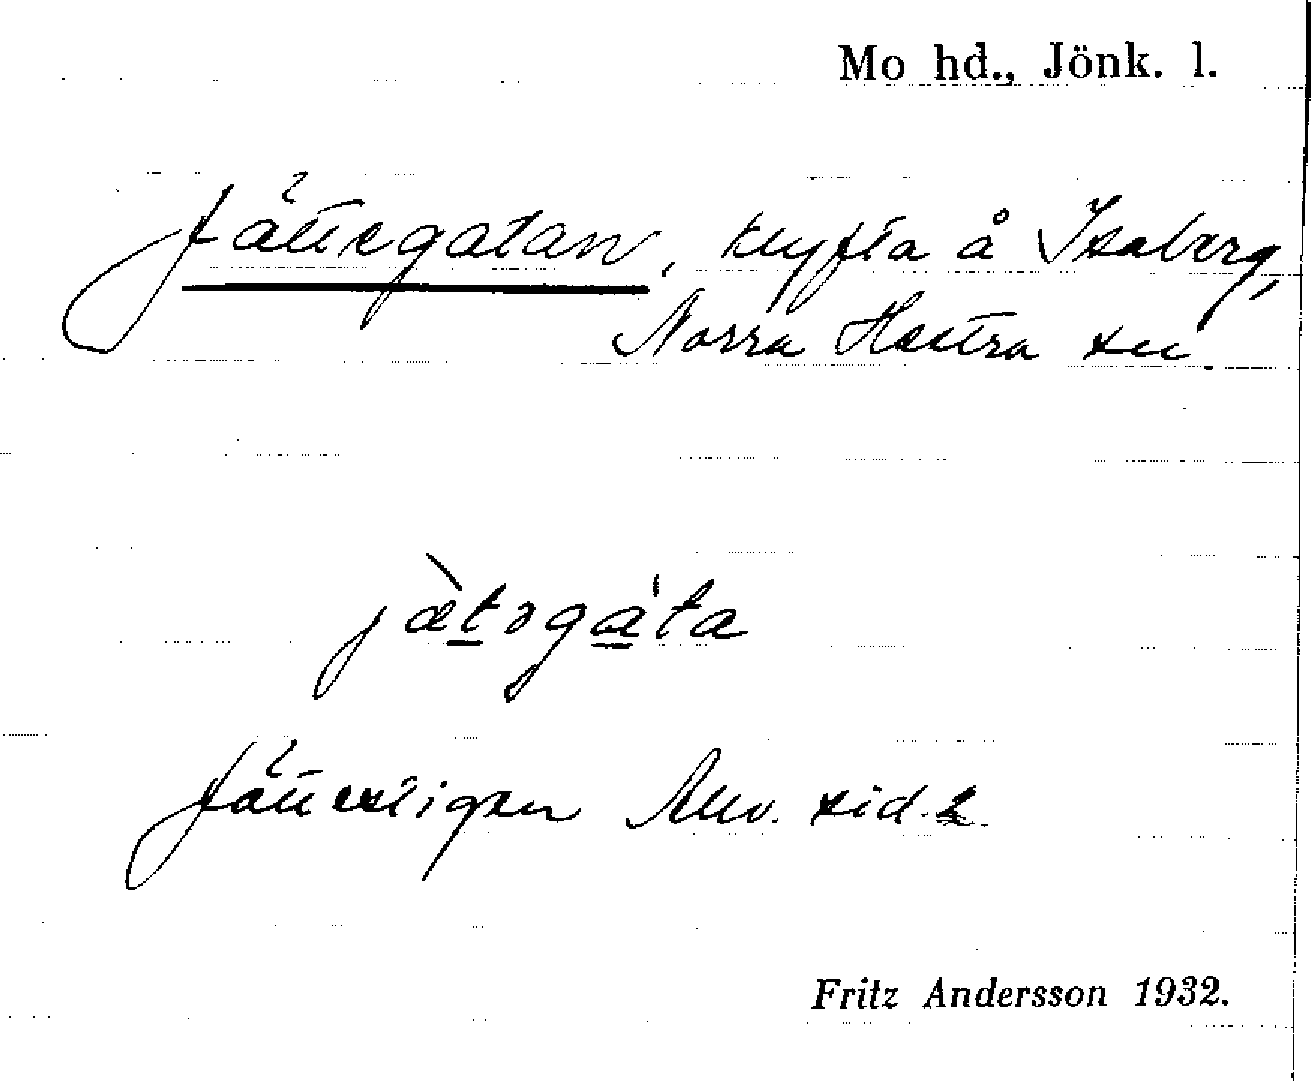 Mo hd., Jönk. l.
Jättegatan, klyfta å Isaberg,
Norra Hestra sn
jæ̀təga'ta
Jättestigen Allv. sid. 2.
Fritz Andersson 1932.